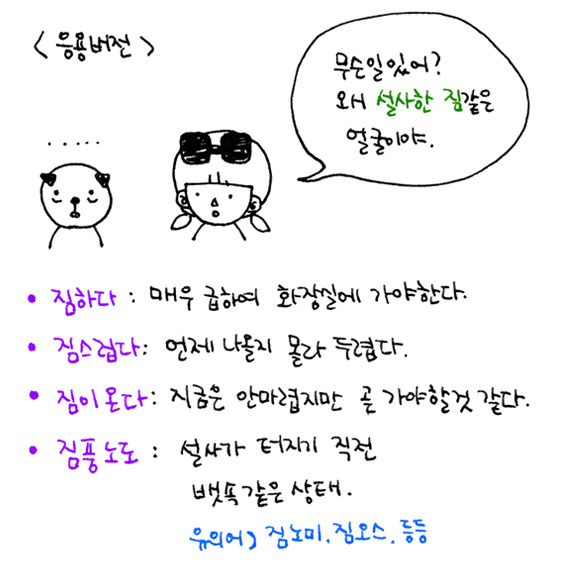 < 응용버전 >
무슨일있어?
왜 설사한 짐같은
얼굴이야.
.....
• 짐하다 : 매우 급하여 화장실에 가야한다.
• 짐스럽다 : 언제 나올지 몰라 두렵다.
• 짐이온다 : 지금은 안마렵지만 곧 가야할것 같다.
• 짐풍노도 : 설사가 터지기 직전
뱃속같은 상태.
유의어) 짐노미, 짐오스, 등등